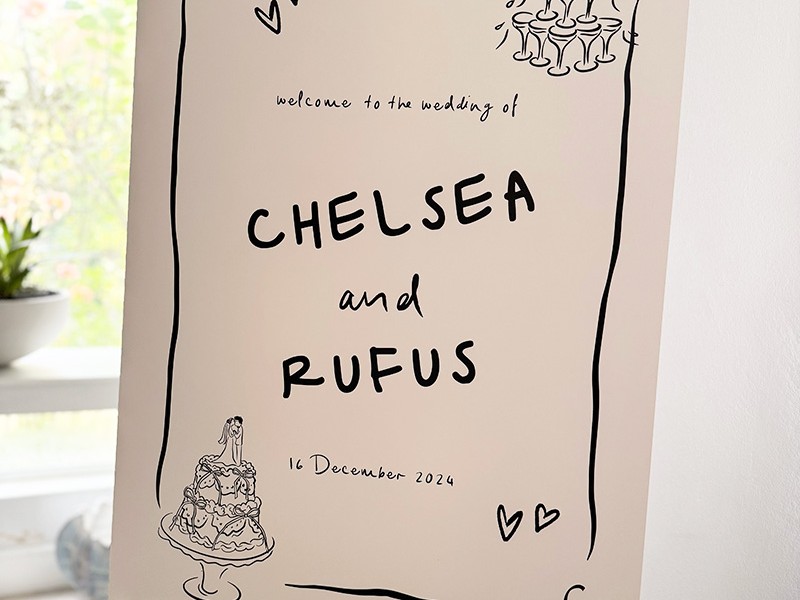 welcome to the wedding of
CHELSEA
and
RUFUS
16 December 2024